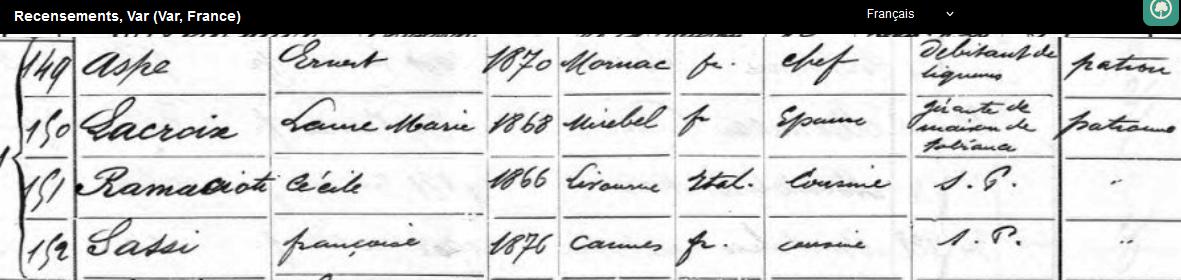 Recensements, Var (Var, France)
Français
149 Aspe Ernest 1870 Mornac fr. chef Débitant de liqueurs patron
150 Lacroix Laure Marie 1868 Mirebel fr Epouse gérante de maison de patronne
151 Ramacioti Cécile 1866 Livourne Ital. cousine s. P. "
152 Sassi françoise 1876 Cannes fr. cousine s. P. "